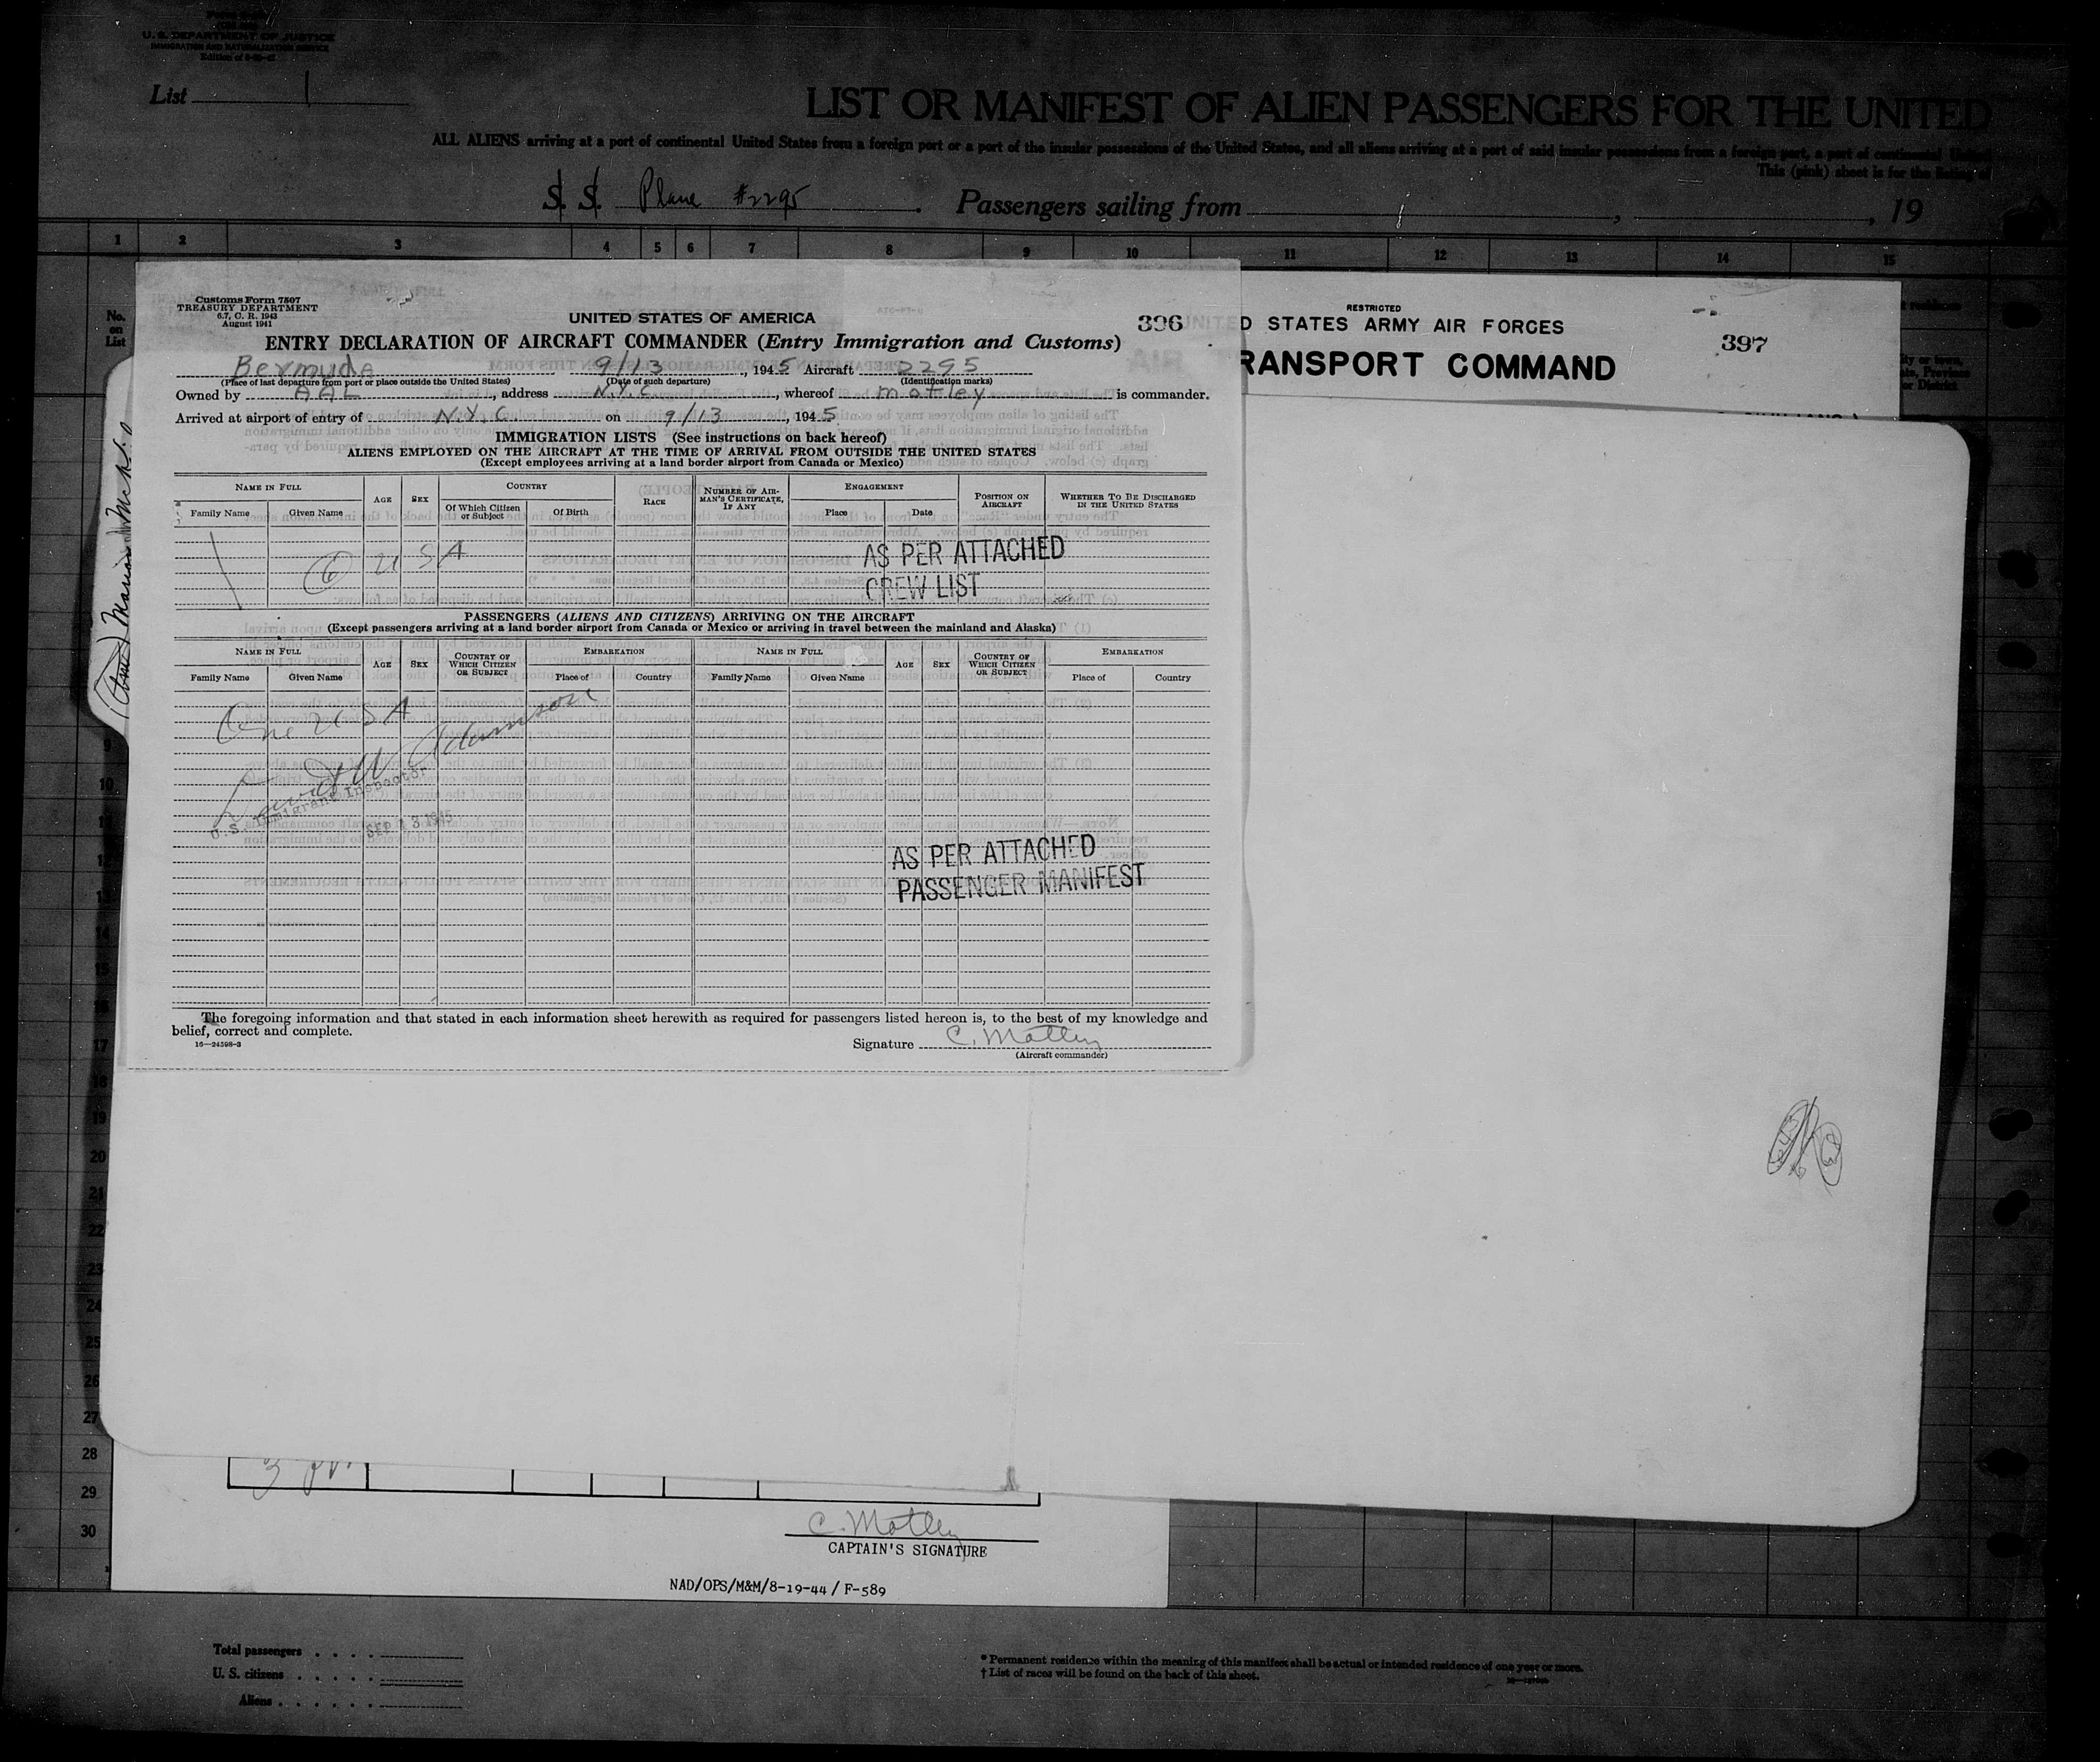 U. S. DEPARTMENT OF JUSTICE
IMMIGRATION AND NATURALIZATION SERVICE
List 1
LIST OR MANIFEST OF ALIEN PASSENGERS FOR THE UNITED
ALL ALIENS arriving at a port of continental United States from a foreign port or a port of the insular possessions of the United States, and all aliens arriving at a port of said insular possessions from a foreign port, a port of continental United
This (pink) sheet is for the listing of
S. S. Plane #2295 . Passengers sailing from , , 19
1 2 3 4 5 6 7 8 9 10 11 12 13 14 15
No. on List
Customs Form 7507
TREASURY DEPARTMENT
6.7, C. R. 1943
August 1941
UNITED STATES OF AMERICA
396
ENTRY DECLARATION OF AIRCRAFT COMMANDER (Entry Immigration and Customs)
Bermuda 9/13, 1945 Aircraft 2295
(Place of last departure from port or place outside the United States) (Date of such departure) (Identification marks)
Owned by AAL, address N.Y.C., whereof Motley is commander.
Arrived at airport of entry of N.Y.C. on 9/13, 1945
IMMIGRATION LISTS (See instructions on back hereof)
ALIENS EMPLOYED ON THE AIRCRAFT AT THE TIME OF ARRIVAL FROM OUTSIDE THE UNITED STATES
(Except employees arriving at a land border airport from Canada or Mexico)
NAME IN FULL AGE SEX COUNTRY RACE NUMBER OF AIRMAN'S CERTIFICATE, IF ANY ENGAGEMENT POSITION ON AIRCRAFT WHETHER TO BE DISCHARGED IN THE UNITED STATES
Family Name Given Name Of Which Citizen or Subject Of Birth Place Date
6 USA
AS PER ATTACHED
CREW LIST
PASSENGERS (ALIENS AND CITIZENS) ARRIVING ON THE AIRCRAFT
(Except passengers arriving at a land border airport from Canada or Mexico or arriving in travel between the mainland and Alaska)
NAME IN FULL AGE SEX COUNTRY OF WHICH CITIZEN OR SUBJECT EMBARKATION NAME IN FULL AGE SEX COUNTRY OF WHICH CITIZEN OR SUBJECT EMBARKATION
Family Name Given Name Place of Country Family Name Given Name Place of Country
One USA
David W Adamson
U.S. Immigrant Inspector
SEP 13 1945
AS PER ATTACHED
PASSENGER MANIFEST
The foregoing information and that stated in each information sheet herewith as required for passengers listed hereon is, to the best of my knowledge and
belief, correct and complete.
16—24598-3
Signature C. Motley
(Aircraft commander)
RESTRICTED
D STATES ARMY AIR FORCES
397
RANSPORT COMMAND
9
10
11
12
13
14
15
16
17
18
19
20
21
22
23
24
25
26
27
28
29
30
C. Motley
CAPTAIN'S SIGNATURE
NAD/OPS/M&M/8-19-44 / F-589
Total passengers
U. S. citizens
Aliens
* Permanent residence within the meaning of this manifest shall be actual or intended residence of one year or more.
† List of races will be found on the back of this sheet.